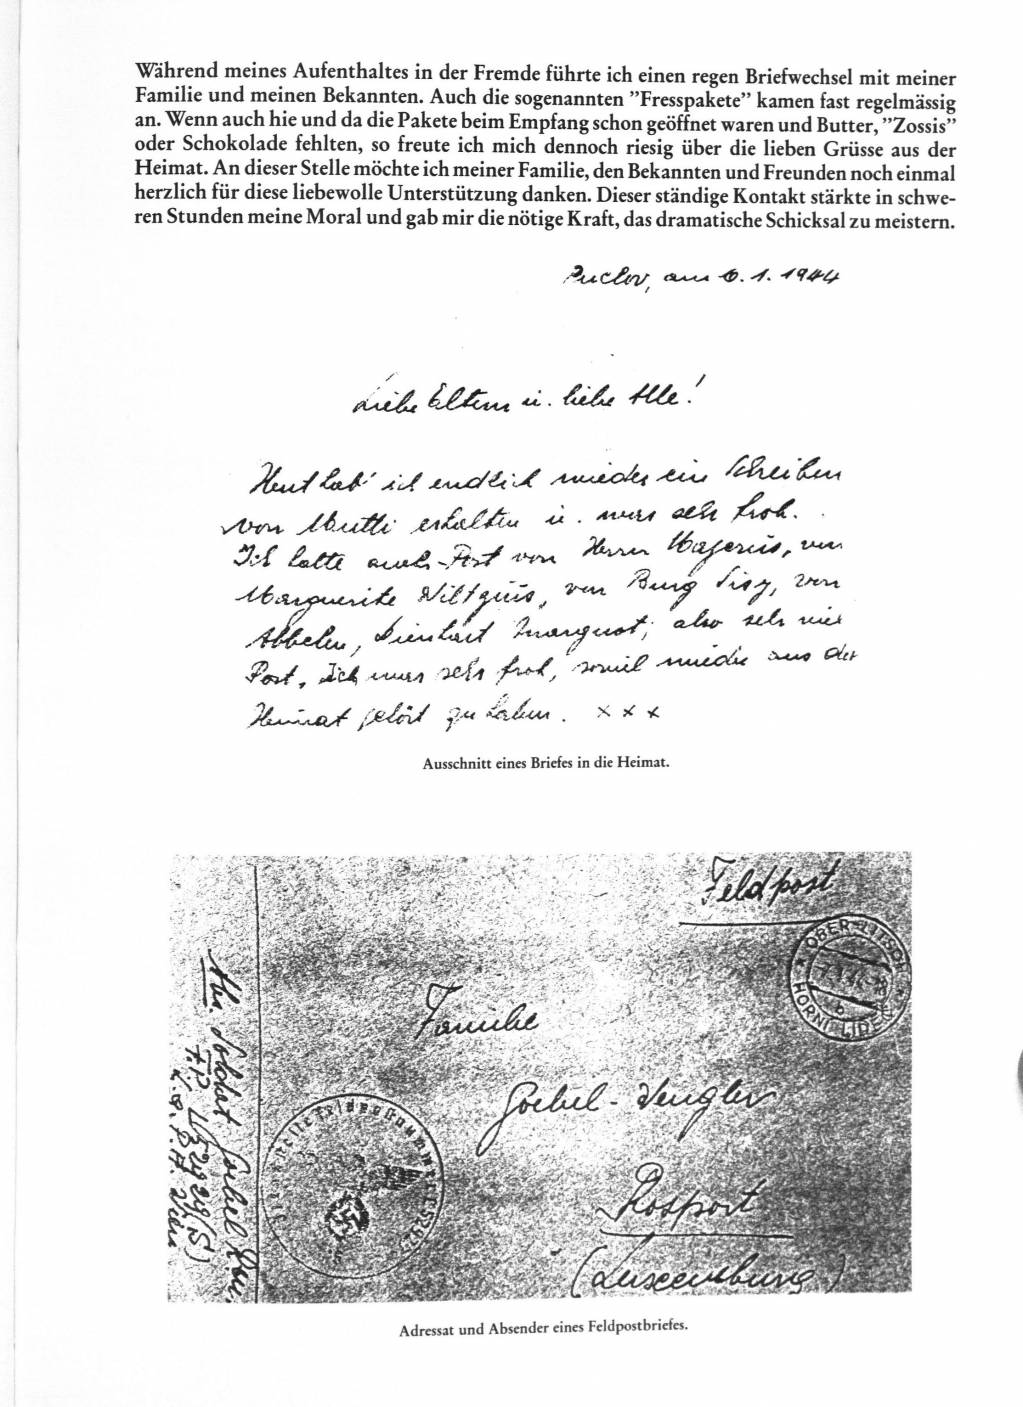 Während meines Aufenthaltes in der Fremde führte ich einen regen Briefwechsel mit meiner
Familie und meinen Bekannten. Auch die sogenannten ”Fresspakete” kamen fast regelmässig
an. Wenn auch hie und da die Pakete beim Empfang schon geöffnet waren und Butter, ”Zossis”
oder Schokolade fehlten, so freute ich mich dennoch riesig über die lieben Grüsse aus der
Heimat. An dieser Stelle möchte ich meiner Familie, den Bekannten und Freunden noch einmal
herzlich für diese liebewolle Unterstützung danken. Dieser ständige Kontakt stärkte in schwe-
ren Stunden meine Moral und gab mir die nötige Kraft, das dramatische Schicksal zu meistern.
Puchov, am 6.1.1944
Liebe Eltern u. liebe Alle!
Heut hab' ich endlich wieder ein Schreiben
von Mutti erhalten u. war sehr froh.
Ich hatte auch Post von Herrn Majerus, von
Marguerite Wiltgius, von Burg Sisy, von
Abbelen, Dienhart Margnot, also sehr viel
Post. Ich war sehr froh, soviel wieder aus der
Heimat gehört zu haben. x x x
Ausschnitt eines Briefes in die Heimat.
Feldpost
OBER-LITSCH
HORNI LIDE
Familie
Goebel-Wengler
Rosport
(Luxemburg)
Abs. Soldat Goebel
Adressat und Absender eines Feldpostbriefes.